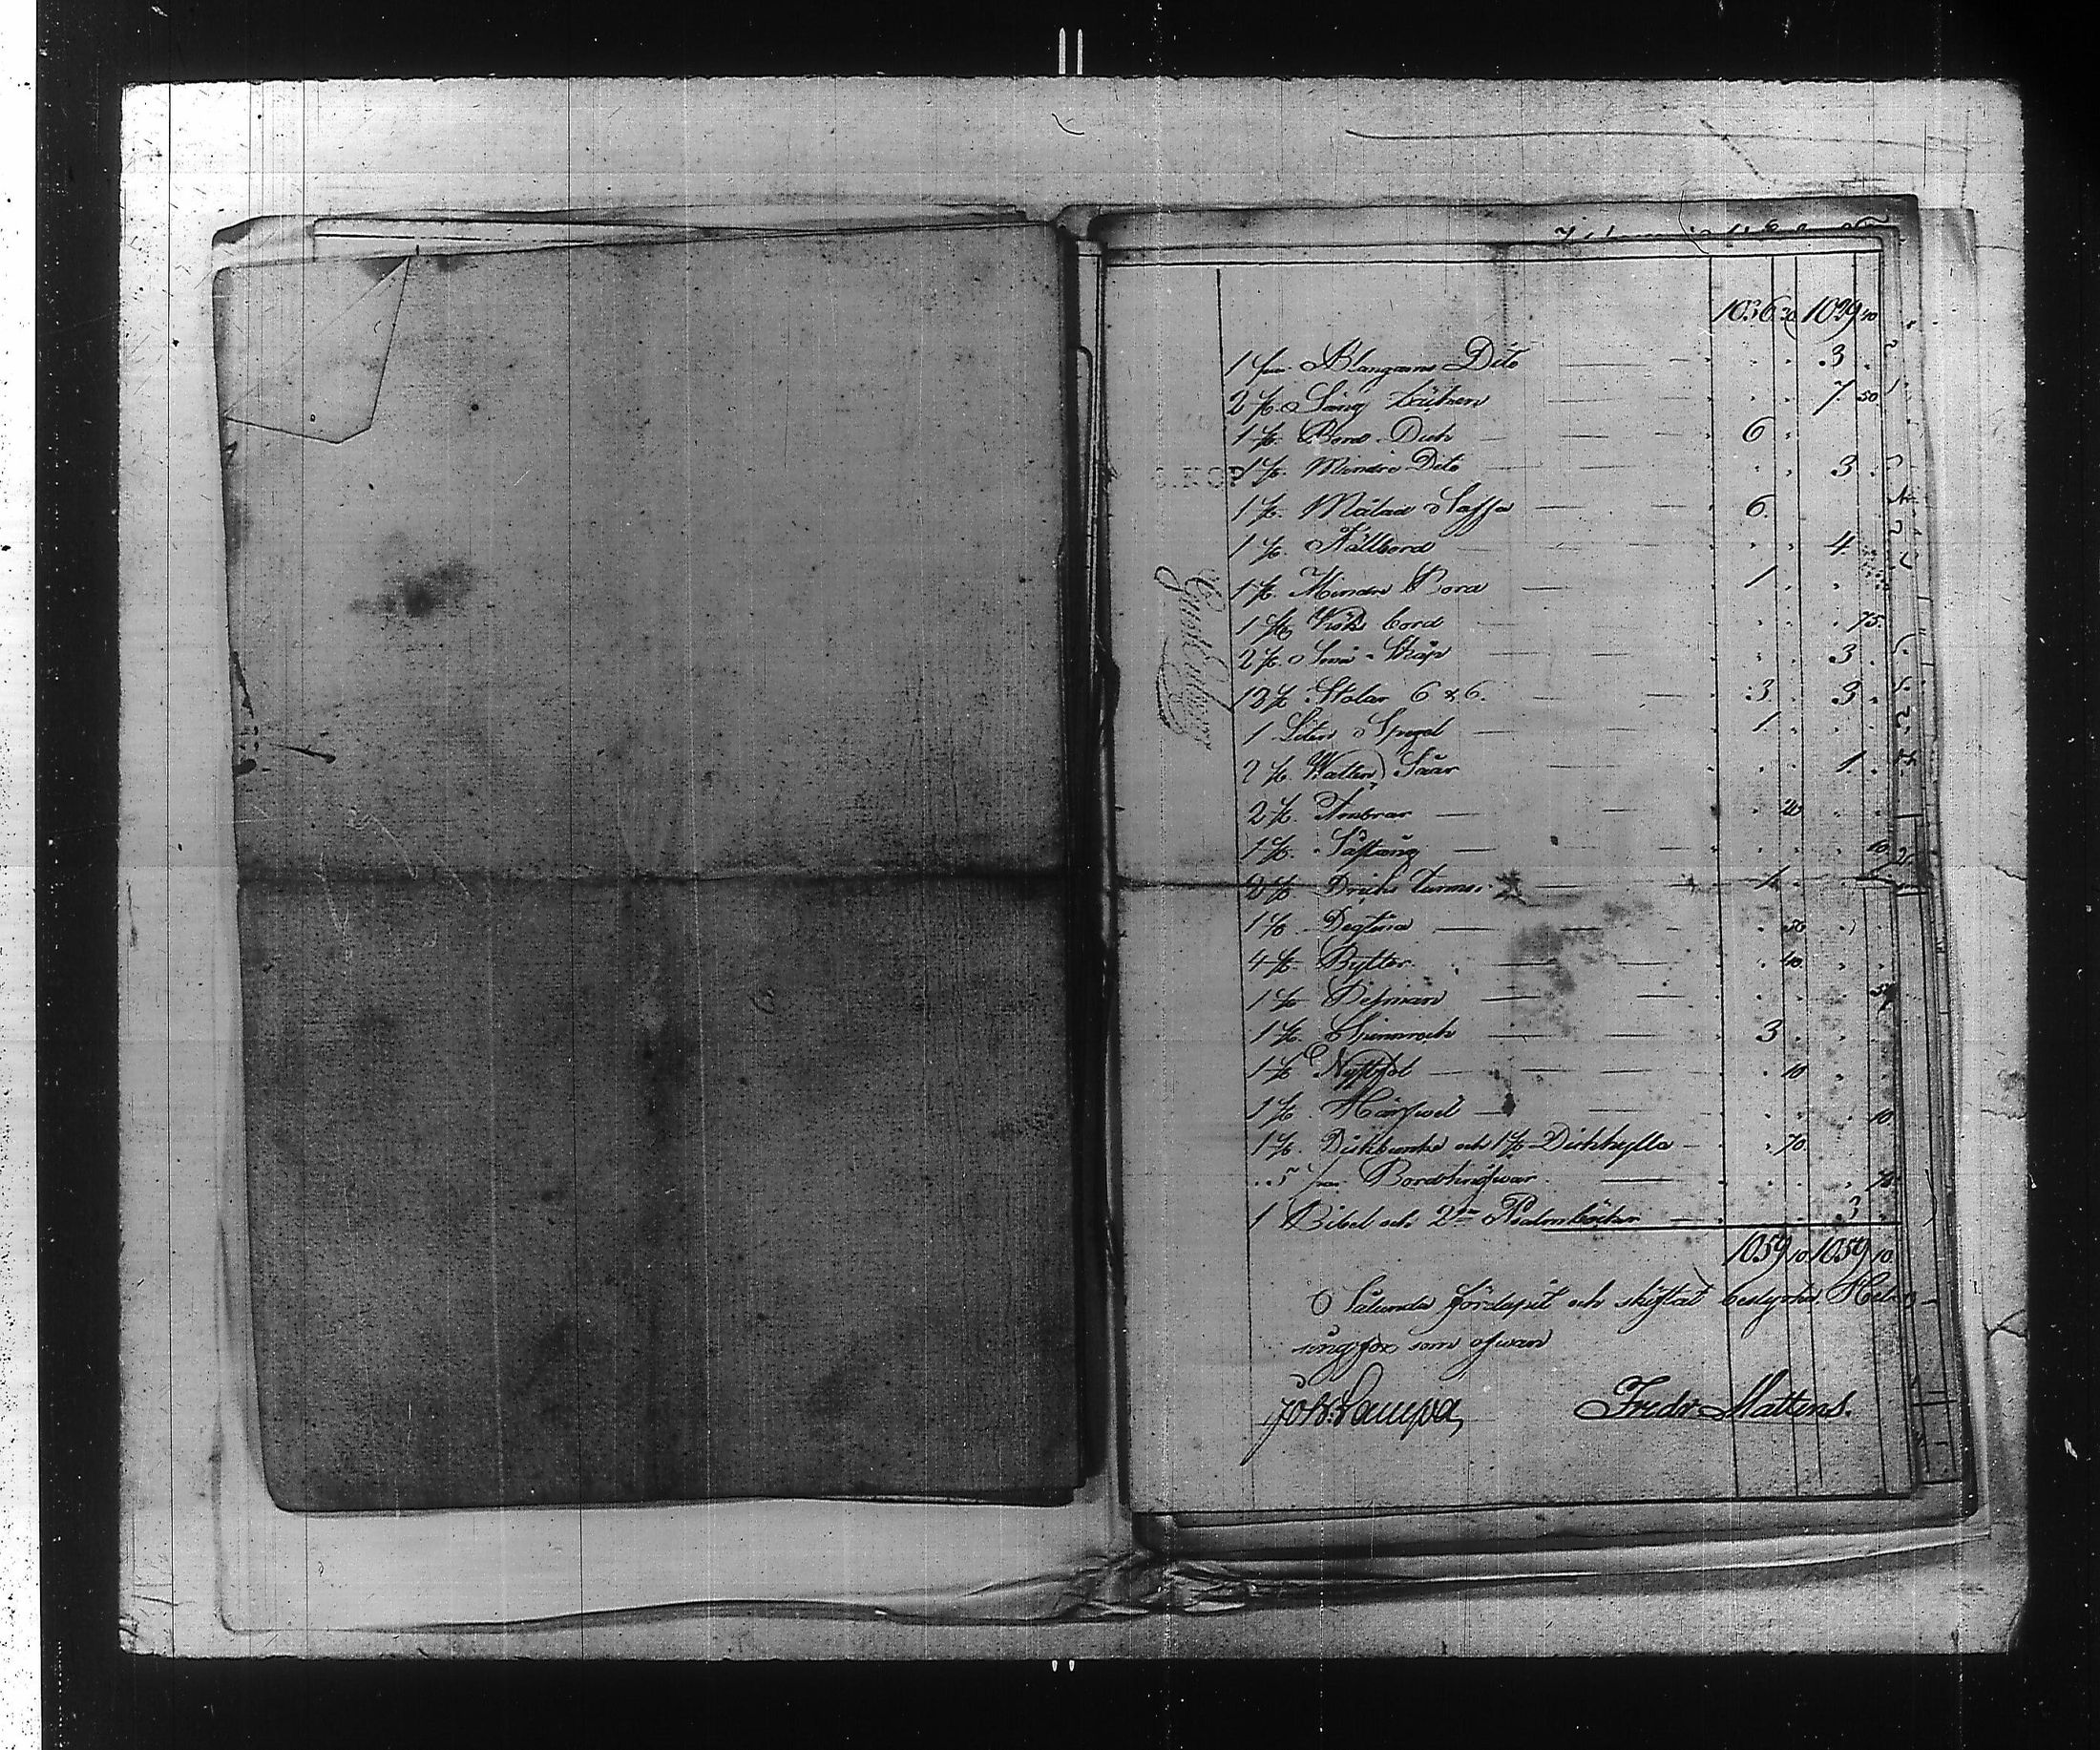 1036 30 1029 40
1 par Blangarns Dito 3
2 st. Säng Täcken 7 50
1 st. Bord Duk 6
1 st. Mindre Dito 3
1 st. Målad Saffa 6
1 st. Fällbord 4
1 st. Mindre Bord 1
1 st. Köks bord 75
2 st. Små Skåp 3
12 st. Stolar 6 & 6. 3 3
1 Liten Spegel 1
2 st. Watten Såar 1
2 st. Ämbrar 20
1 st. Såstång 10
2 st. Dricks tunnor 1
1 st. Degtina 50
4 st. Byttor 40
1 st. Besman 50
1 st. Spinnrock 3
1 st. Nystfol 10
1 st. Härfwel 10
1 st. Diskbunke och 1 st. Diskhylla 70
5 par Bordsknifwar 70
1 Bibel och 2ne Psalmböcker 3
1059 10 1059 10
Sålunda fördelat och skiftat betyga Hels
ingfors som ofwan
Joh: Lampa, Fredr Mattens.